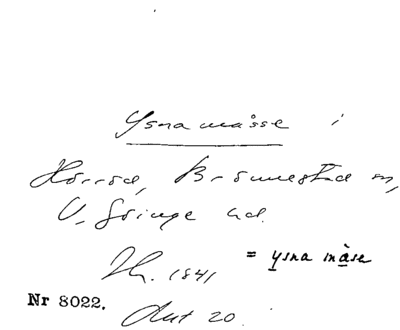 Ysnamåsse i
Hörröd, Brönnestad sn,
V. Göinge hd.
Lh. 1841 = ysna måse
Nr 8022. Akt 20.